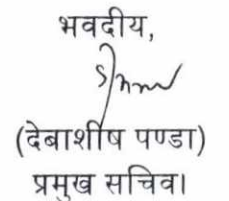 भवदीय,
(देबाशीष पण्डा)
प्रमुख सचिव।